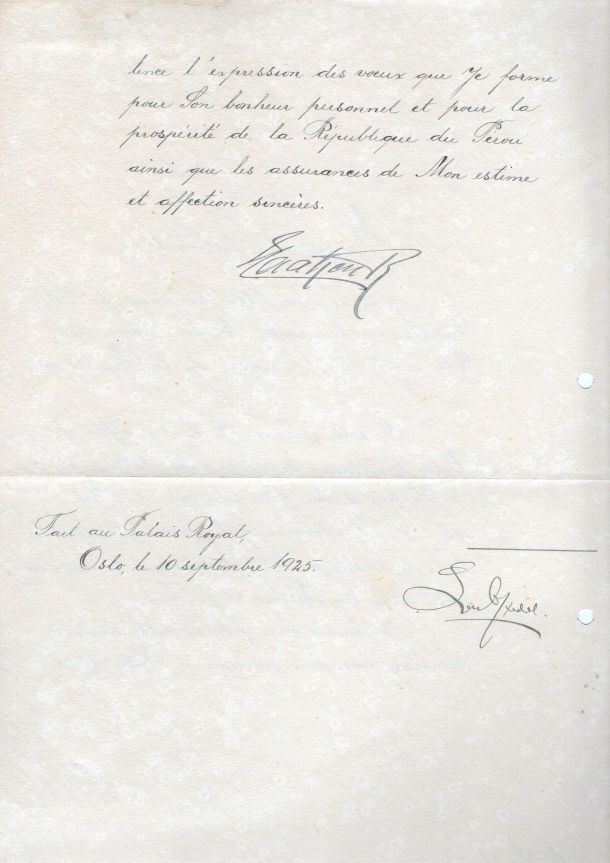 lence l'expression des vœux que Je forme
pour Son bonheur personnel et pour la
prospérité de la République du Pérou
ainsi que les assurances de Mon estime
et affection sincères.
Haakon R
Fait au Palais Royal,
Oslo, le 10 septembre 1925.